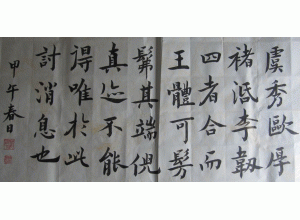 虞秀歐厚
褚泜李韌
四者合而
王體可髣
髴其端倪
真迹不能
得唯於此
討消息也
甲午春日